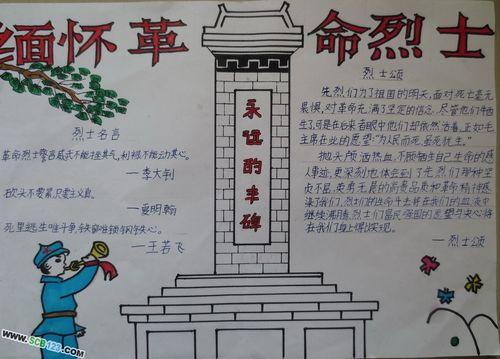 缅怀革命烈士
烈士名言
革命烈士 威武不能挫其气,利禄不能动其心。
—李大钊
砍头不要紧,只要主义真。
—夏明翰
死里逃生唯斗争,铁窗难锁钢铁心。
—王若飞
永恒的丰碑
烈士颂
先烈们为了祖国的明天,面对死亡毫无
畏惧,对革命充满了坚定的信念,尽管他们牺牲
了,可是在后来者眼中他们却依然活着,正如毛
主席在此的愿望:"为人民而死,虽死犹生。"
抛头颅洒热血,不顾牺牲自己生命的感
人事迹,更深刻地体会到了先烈们那种坚
贞不屈,英勇无畏的高贵品质和革命精神感
染了我们,烈士们的生命 将在我们的血液中
继续沸腾,烈士们富民强国的愿望与决心将
在我们身上得以实现。
—烈士颂
www.SCB123.com